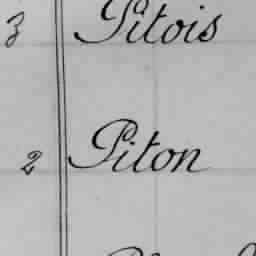 3 Pitois
2 Piton